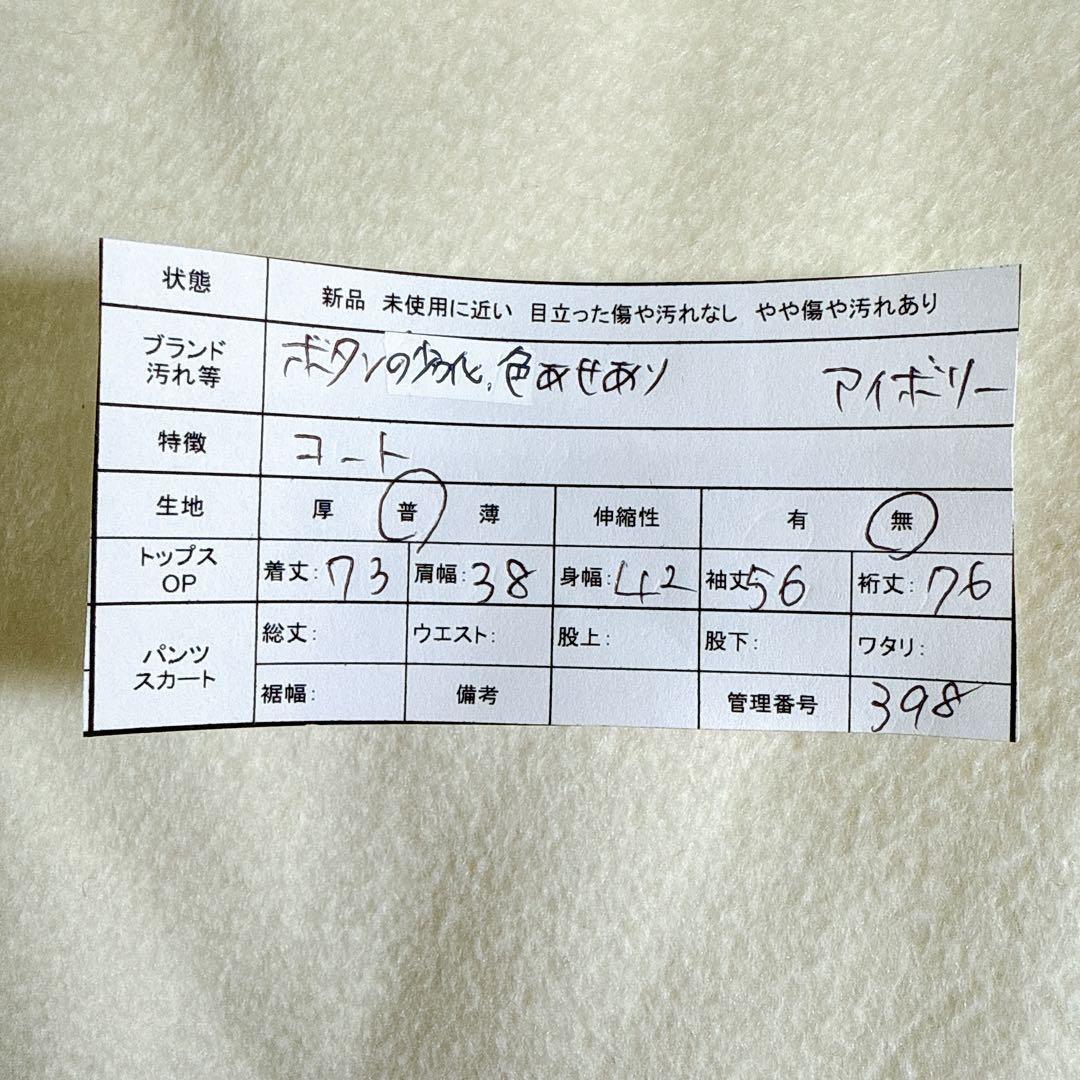 状態 新品 未使用に近い 目立った傷や汚れなし やや傷や汚れあり
ブランド
汚れ等 ボタンの劣化、色あせあり アイボリー
特徴 コート
生地 厚 普 薄 伸縮性 有 無
トップス
OP 着丈:73 肩幅:38 身幅:42 袖丈56 裄丈:76
パンツ
スカート 総丈: ウエスト: 股上: 股下: ワタリ:
裾幅: 備考 管理番号 398